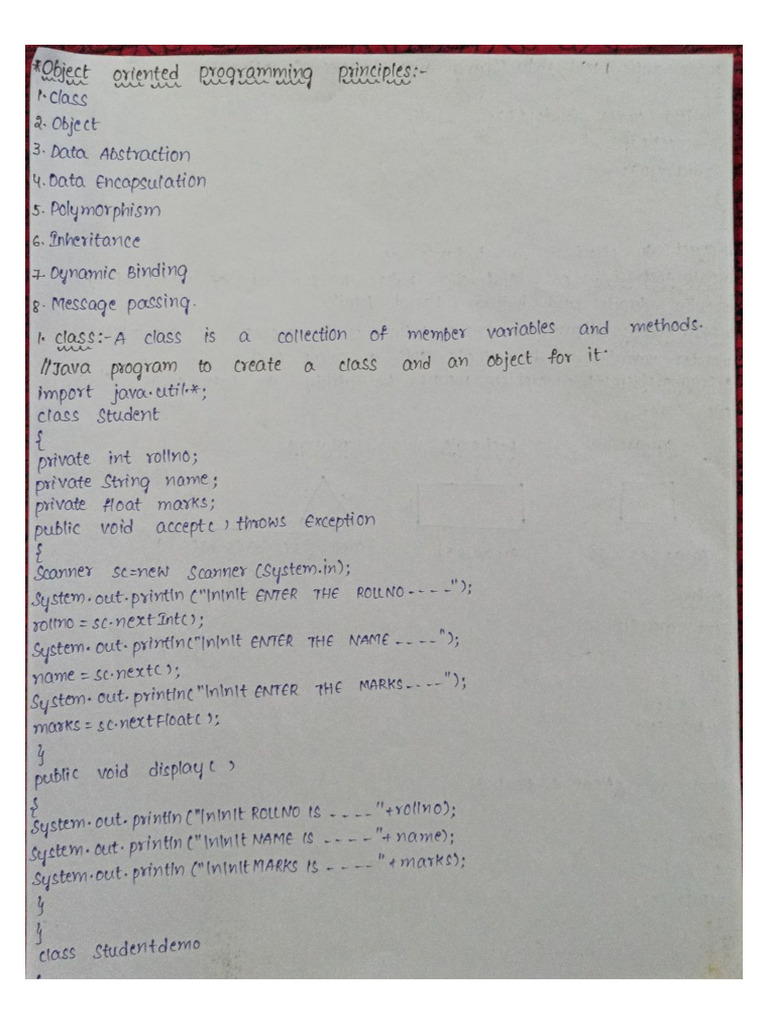 *Object oriented programming principles:-
1. Class
2. Object
3. Data Abstraction
4. Data Encapsulation
5. Polymorphism
6. Inheritance
7. Dynamic Binding
8. Message passing.
1. class:- A class is a collection of member variables and methods.
//Java program to create a class and an object for it.
import java.util.*;
class Student
{
private int rollno;
private String name;
private float marks;
public void accept() throws Exception
{
Scanner sc=new Scanner(System.in);
System.out.println("\n\n\t ENTER THE ROLLNO----");
rollno = sc.nextInt();
System.out.println("\n\n\t ENTER THE NAME----");
name = sc.next();
System.out.println("\n\n\t ENTER THE MARKS----");
marks = sc.nextFloat();
}
public void display()
{
System.out.println("\n\n\t ROLLNO IS ----"+rollno);
System.out.println("\n\n\t NAME IS ----"+name);
System.out.println("\n\n\t MARKS IS ----"+marks);
}
}
class Studentdemo